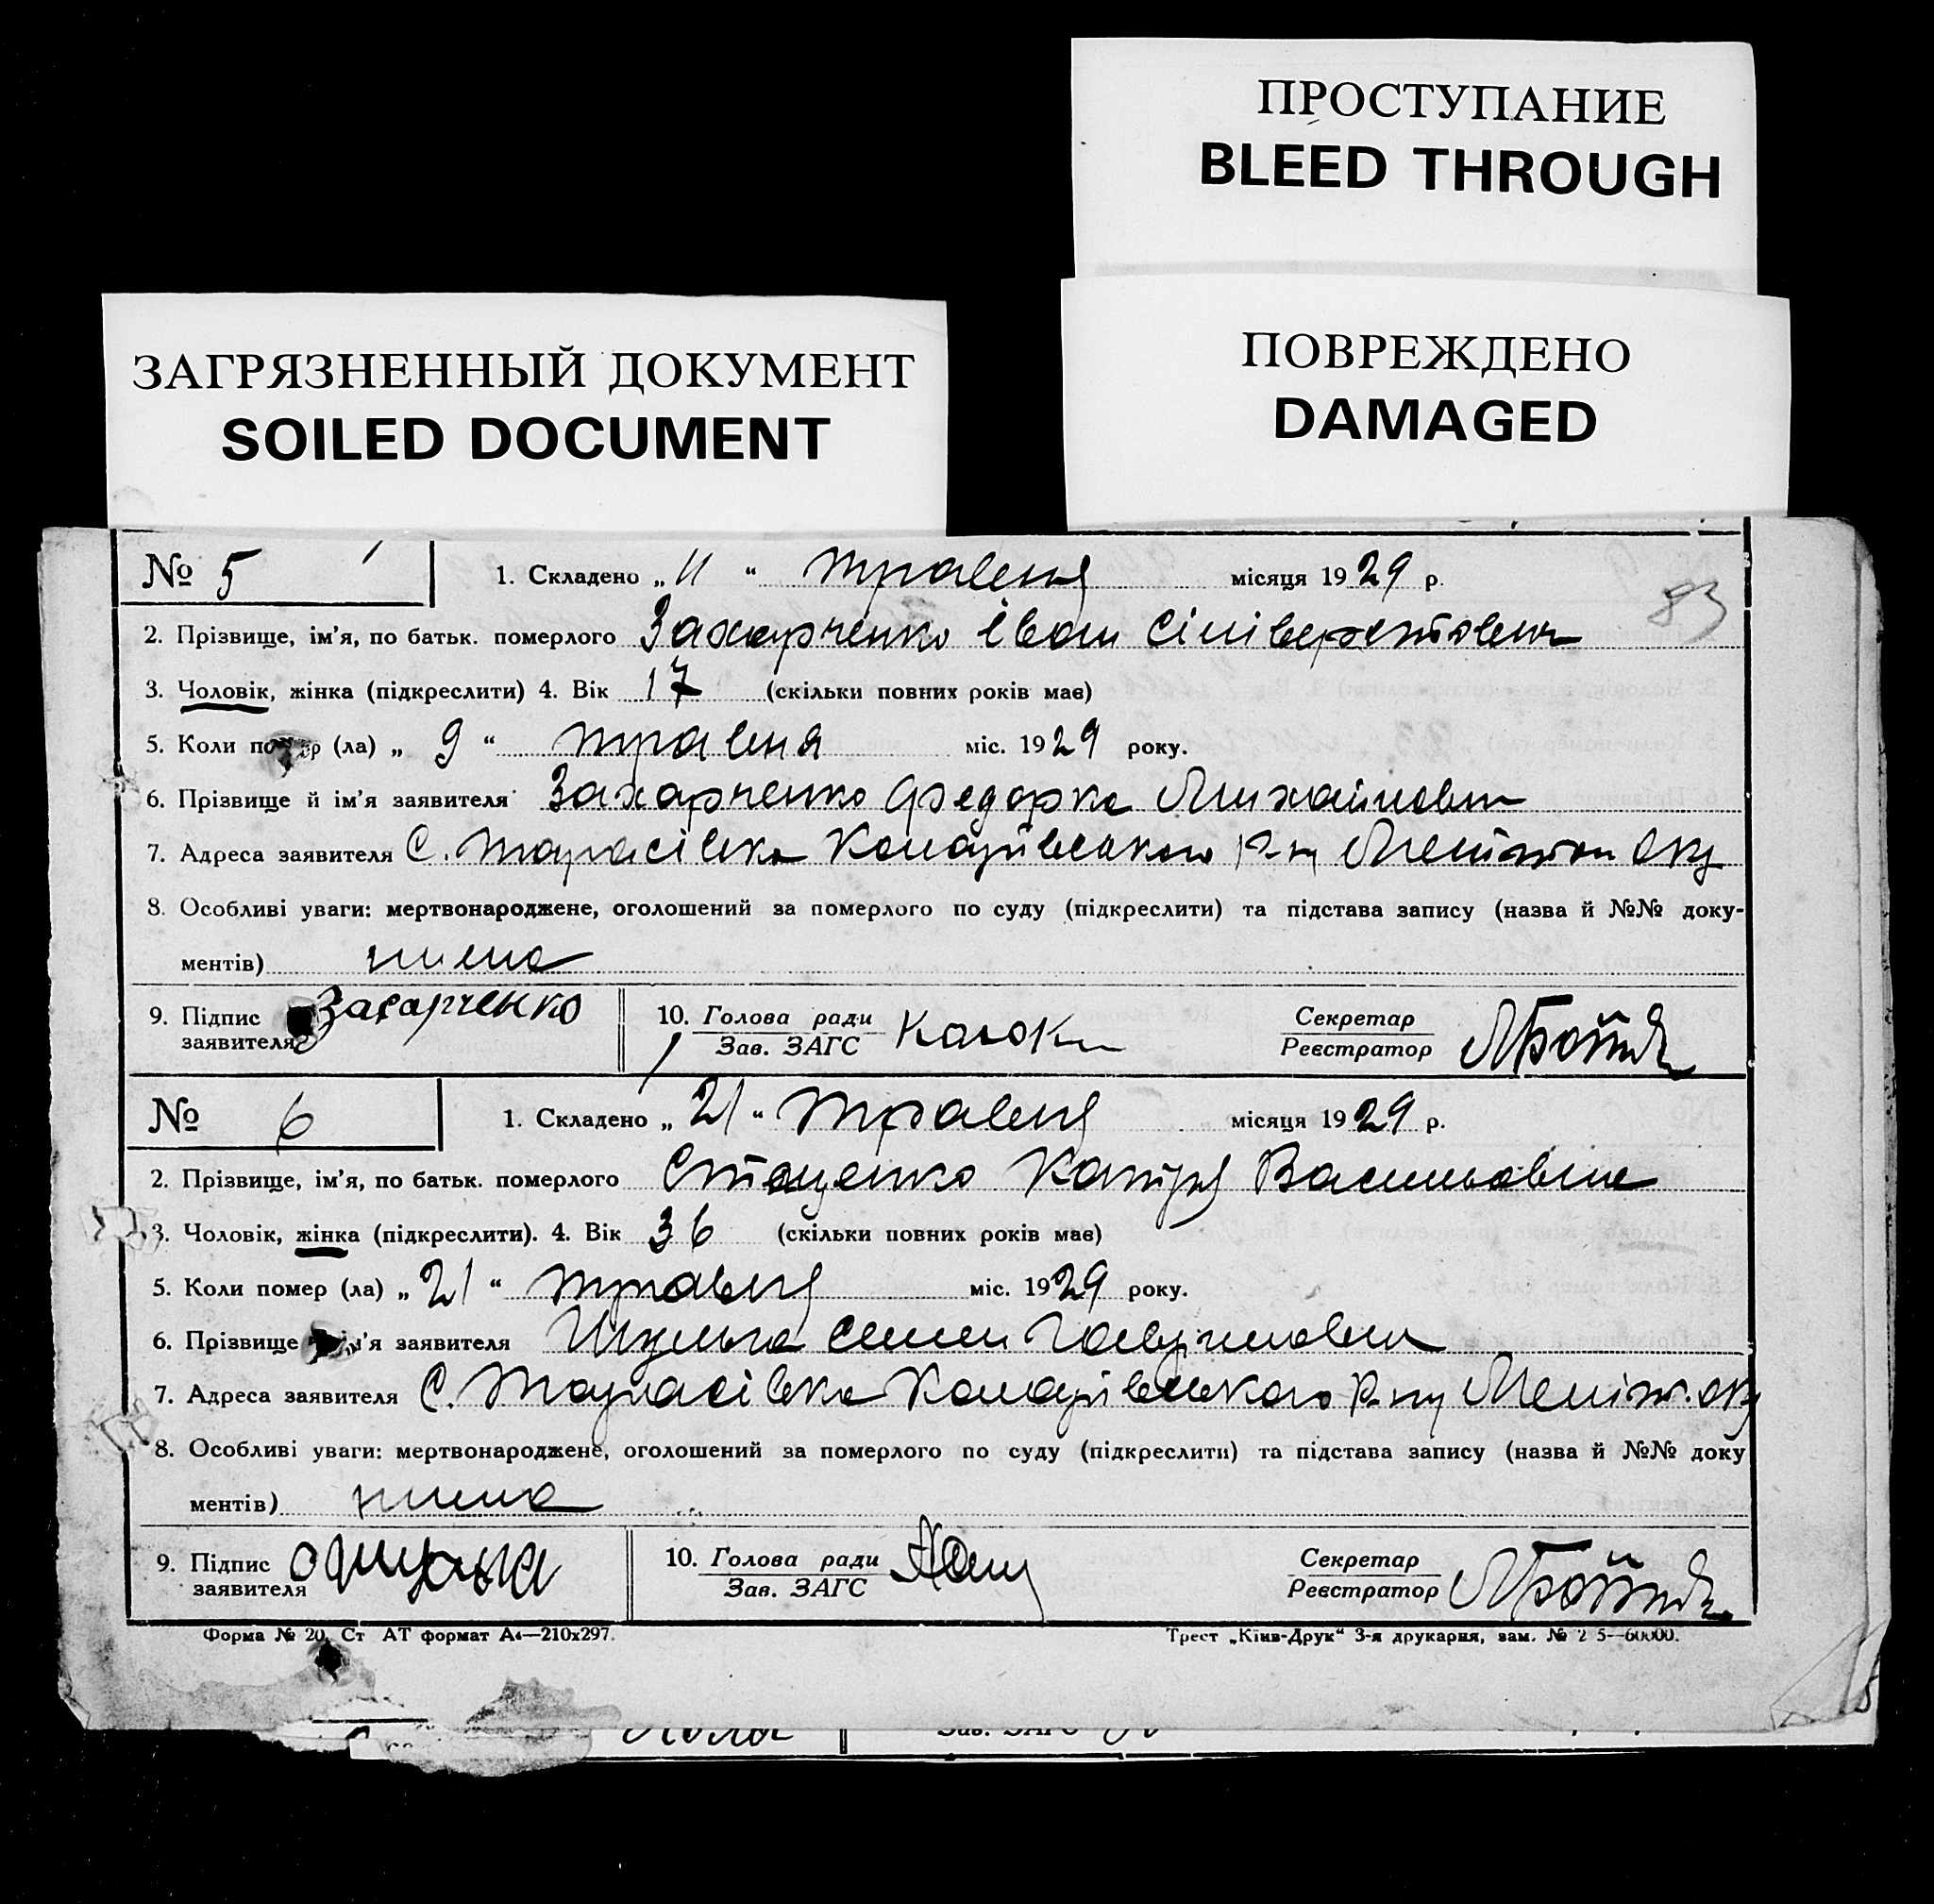 ПРОСТУПАНИЕ
BLEED THROUGH
ЗАГРЯЗНЕННЫЙ ДОКУМЕНТ
SOILED DOCUMENT
ПОВРЕЖДЕНО
DAMAGED
№ 5 1. Складено „ 11 “ травня місяця 1929 р.
83
2. Прізвище, ім'я, по батьк. померлого Захарченко Іван
3. Чоловік, жінка (підкреслити) 4. Вік 17 (скільки повних років має)
5. Коли помер (ла) „ 9 “ травня міс. 1929 року.
6. Прізвище й ім'я заявителя Захарченко Федорка
7. Адреса заявителя С. Тарасівка р-ну
8. Особливі уваги: мертвонароджене, оголошений за померлого по суду (підкреслити) та підстава запису (назва й №№ доку-
ментів) нима
9. Підпис заявителя Захарченко 10. Голова ради Зав. ЗАГС Секретар Реєстратор
№ 6 1. Складено „ 21 “ травня місяця 1929 р.
2. Прізвище, ім'я, по батьк. померлого Стаценко Катря Васильовна
3. Чоловік, жінка (підкреслити). 4. Вік 36 (скільки повних років має)
5. Коли помер (ла) „ 21 “ травня міс. 1929 року.
6. Прізвище ім'я заявителя Шульга Семен
7. Адреса заявителя С. Тарасівка р-ну
8. Особливі уваги: мертвонароджене, оголошений за померлого по суду (підкреслити) та підстава запису (назва й №№ доку
ментів) нима
9. Підпис заявителя 10. Голова ради Зав. ЗАГС Секретар Реєстратор
Форма № 20. Ст АТ формат А4—210x297.
Трест „Київ-Друк“ 3-я друкарня, зам. №
Зав. ЗАГС